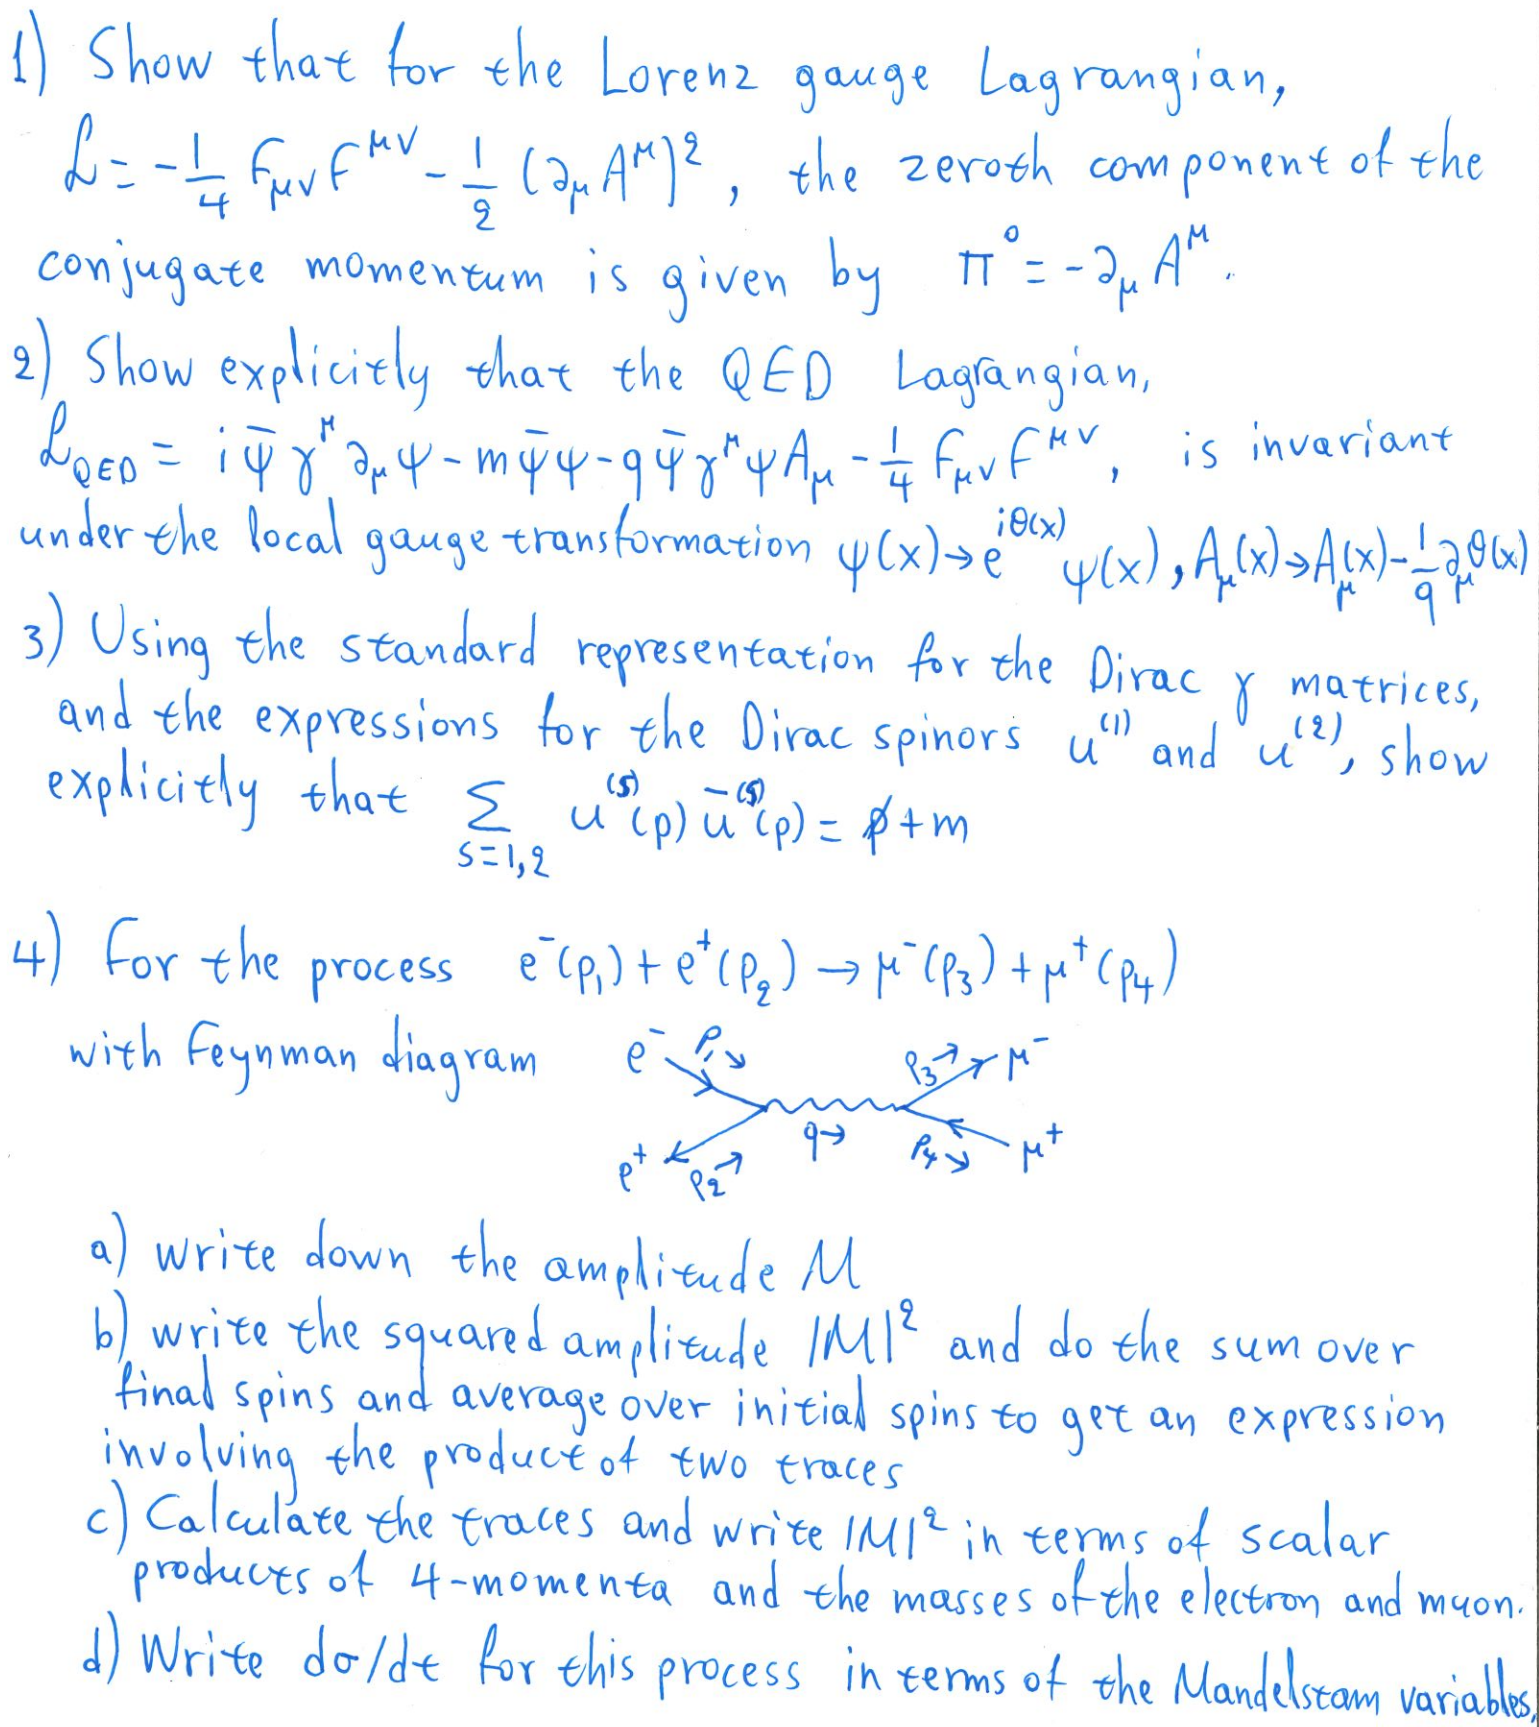 1) Show that for the Lorenz gauge Lagrangian,
ℒ = -1/4 F_μν F^μν - 1/2 (∂_μ A^μ)², the zeroth component of the
conjugate momentum is given by π⁰ = -∂_μ A^μ.
2) Show explicitly that the QED Lagrangian,
ℒ_QED = i ψ̄ γ^μ ∂_μ ψ - m ψ̄ ψ - q ψ̄ γ^μ ψ A_μ - 1/4 F_μν F^μν, is invariant
under the local gauge transformation ψ(x) → e^{iθ(x)} ψ(x), A_μ(x) → A_μ(x) - 1/q ∂_μ θ(x)
3) Using the standard representation for the Dirac γ matrices,
and the expressions for the Dirac spinors u^(1) and u^(2), show
explicitly that Σ_{s=1,2} u^(s)(p) ū^(s)(p) = p̸ + m
4) For the process e⁻(p₁) + e⁺(p₂) → μ⁻(p₃) + μ⁺(p₄)
with Feynman diagram
e⁻ p₁ → p₃ → μ⁻
e⁺ p₂ → q → p₄ → μ⁺
a) write down the amplitude M
b) write the squared amplitude |M|² and do the sum over
final spins and average over initial spins to get an expression
involving the product of two traces
c) Calculate the traces and write |M|² in terms of scalar
products of 4-momenta and the masses of the electron and muon.
d) Write dσ/dt for this process in terms of the Mandelstam variables.